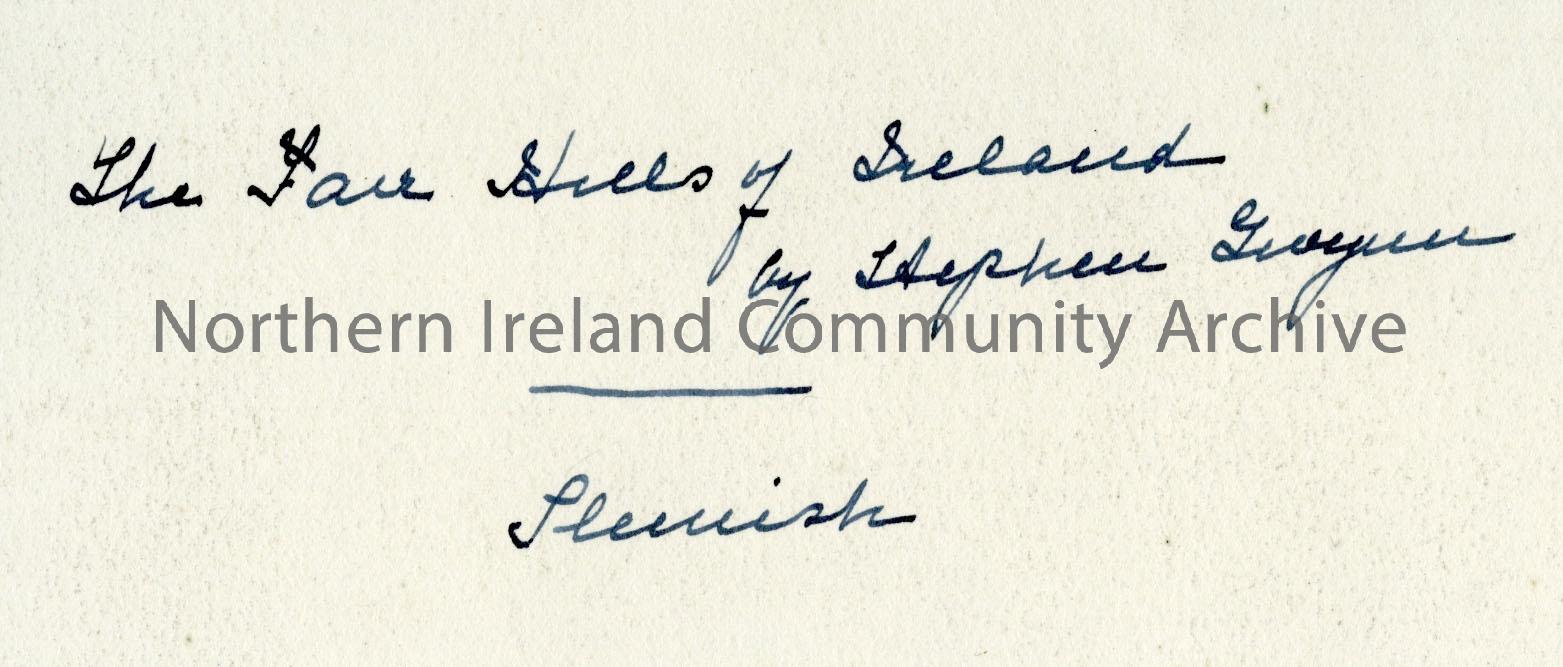 The Fair Hills of Ireland
by Stephen Gwynn
Northern Ireland Community Archive
Slemish